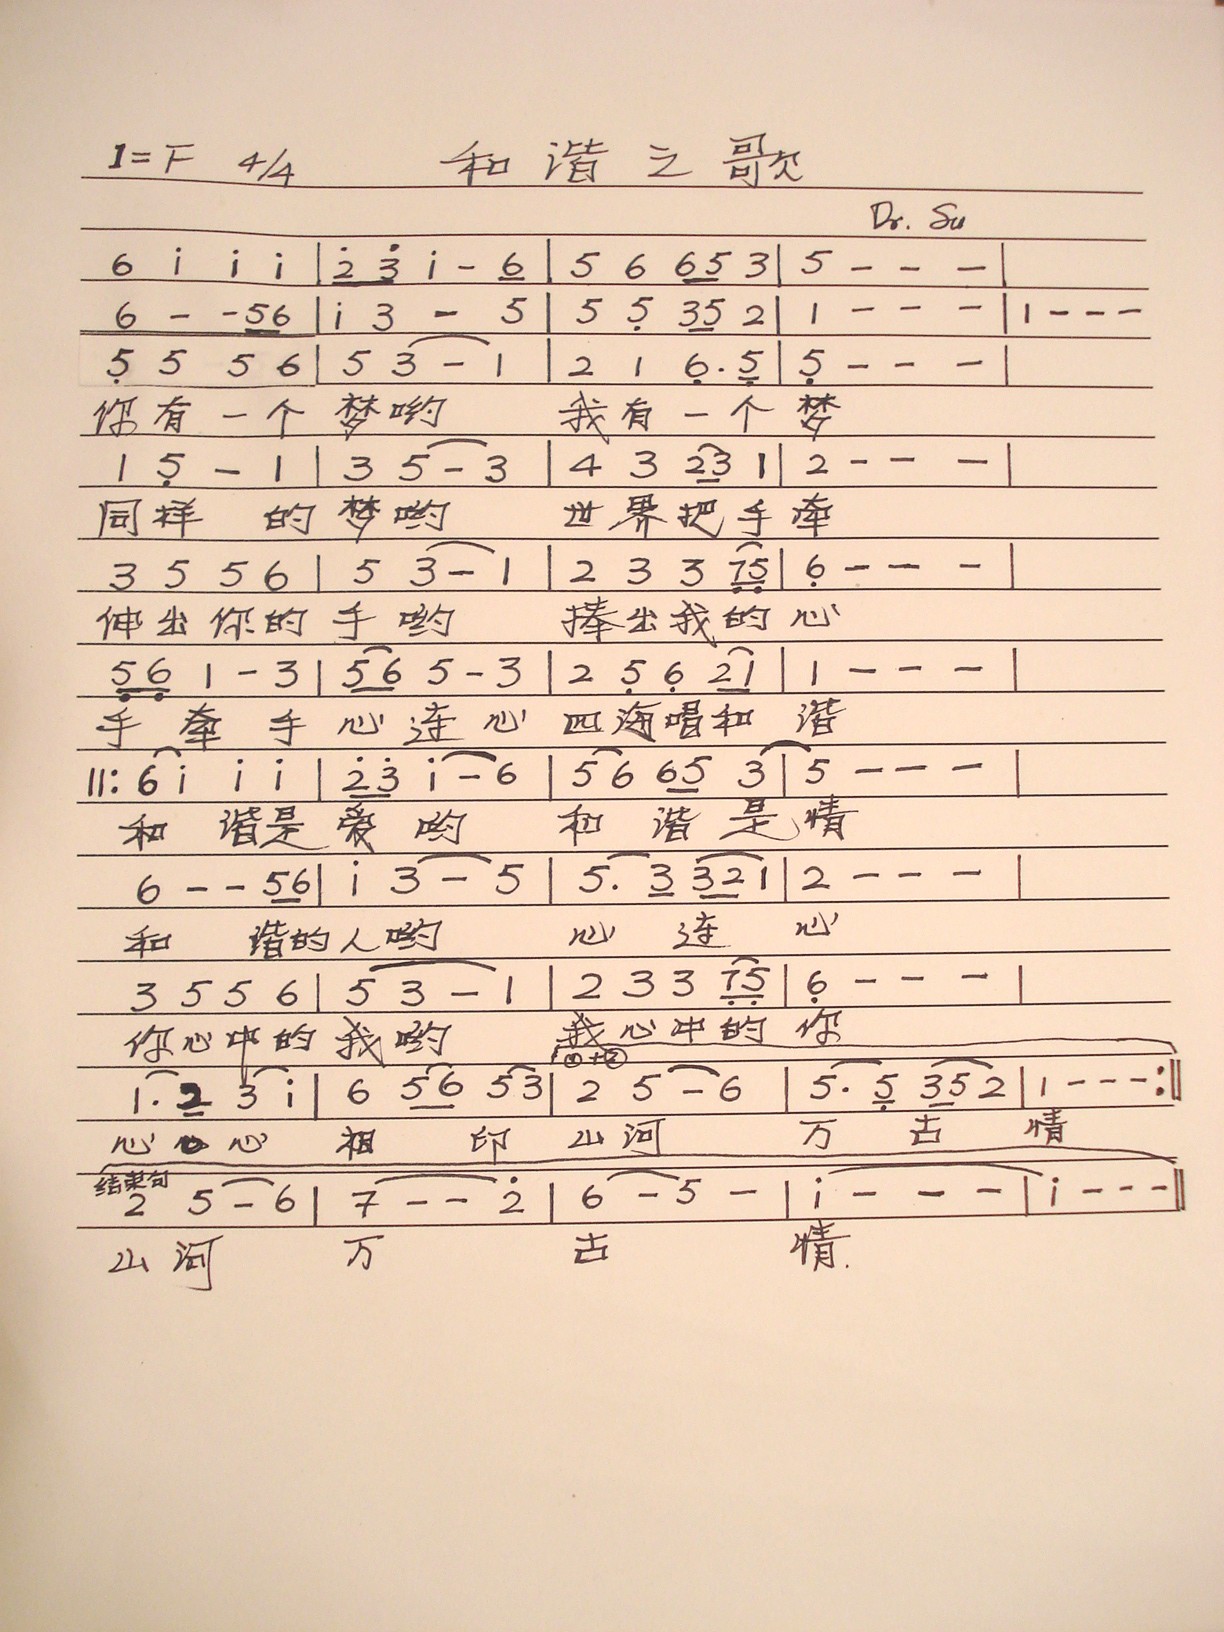 1=F 4/4 和谐之歌
Dr. Su
6 i i i | 2̇ 3̇ i - 6 | 5 6 65 3 | 5 - - - |
6 - - 56 | i 3 - 5 | 5 5̣ 35 2 | 1 - - - | 1 - - -
5̣ 5 5 6 | 5 3 - 1 | 2 1 6̣· 5̣ | 5̣ - - - |
你有一个梦哟 我有一个梦
1 5̣ - 1 | 3 5 - 3 | 4 3 23 1 | 2 - - - |
同样的梦哟 世界把手牵
3 5 5 6 | 5 3 - 1 | 2 3 3 7̣5̣ | 6̣ - - - |
伸出你的手哟 捧出我的心
5̣6̣ 1 - 3 | 56 5 - 3 | 2 5̣ 6̣ 21 | 1 - - - |
手牵手心连心四海唱和谐
||: 6 i i i | 2̇3̇ i - 6 | 5 6 65 3 | 5 - - - |
和谐是爱哟 和谐是情
6 - - 56 | i 3 - 5 | 5. 3 32 1 | 2 - - - |
和谐的人哟 心连心
3 5 5 6 | 5 3 - 1 | 2 3 3 7̣5̣ | 6̣ - - - |
你心中的我哟 我心中的你
①+②
1· 2 3 i | 6 56 53 | 2 5 - 6 | 5· 5̣ 35 2 | 1 - - - :||
心心心相印 山河万古情
结束句
2 5 - 6 | 7 - - 2̇ | 6 - 5 - | i - - - | i - - - ||
山河万古情.